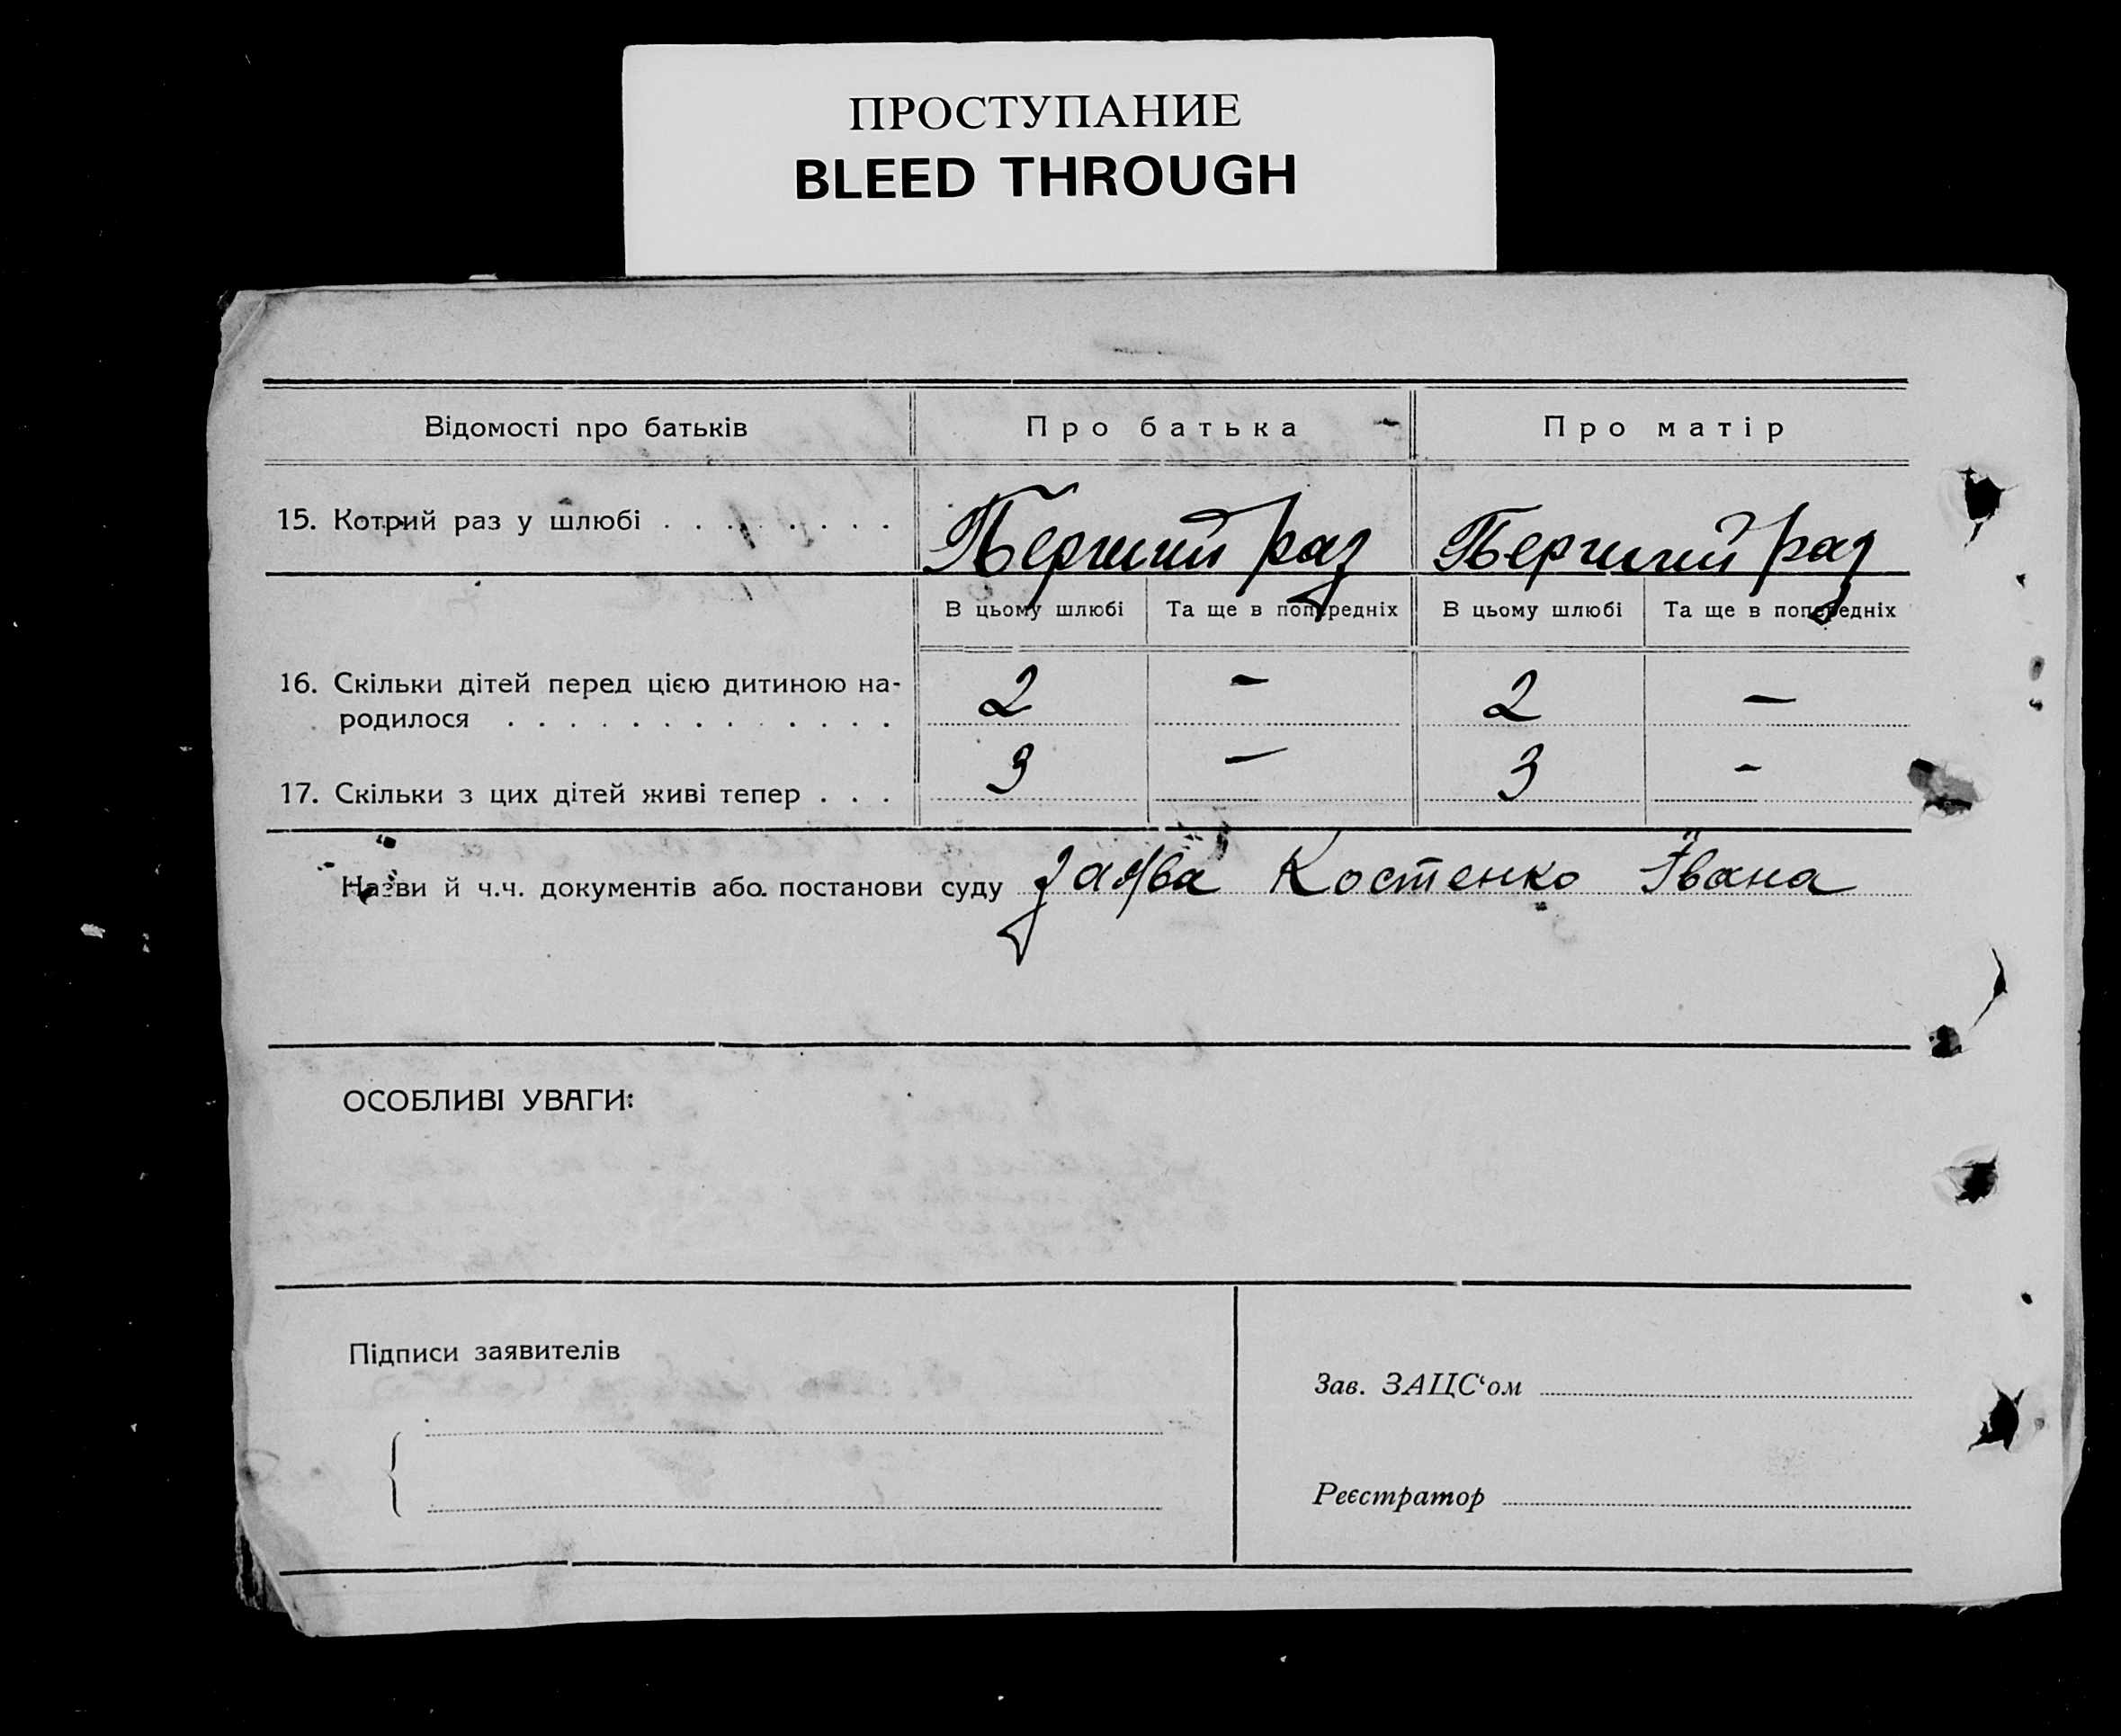 ПРОСТУПАНИЕ
BLEED THROUGH
Відомості про батьків Про батька Про матір
15. Котрий раз у шлюбі . . . . . . . . Перший раз Перший раз
В цьому шлюбі Та ще в попередніх В цьому шлюбі Та ще в попередніх
16. Скільки дітей перед цією дитиною на-
родилося . . . . . . . . . . . . . . 2 - 2 -
17. Скільки з цих дітей живі тепер . . . 3 - 3 -
Назви й ч.ч. документів або постанови суду Заява Костенко Івана
ОСОБЛИВІ УВАГИ:
Підписи заявителів
Зав. ЗАЦС‘ом
Реєстратор